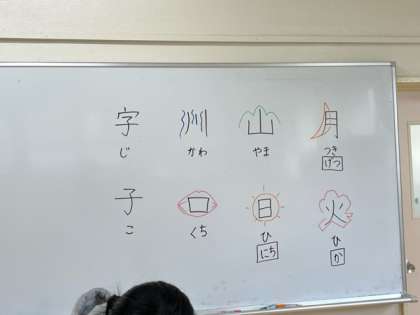 字 川 山 月
じ かわ やま つき
げつ
子 口 日 火
こ くち ひ ひ
にち か